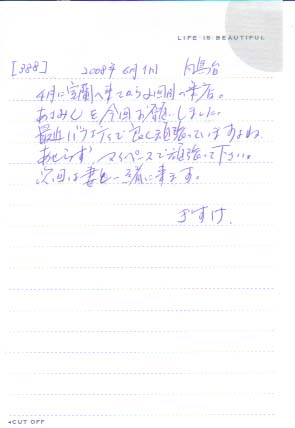 LIFE IS BEAUTIFUL
[388] 2008年6月1日
4月に室蘭へ来てから2回目の来店。
あみみしを今回お願いしました。
最近 で良く頑張っていますよね
あせらず、マイペースで頑張って下さい。
次回は妻と一緒に来ます。
ぎすけ.
◂CUT OFF